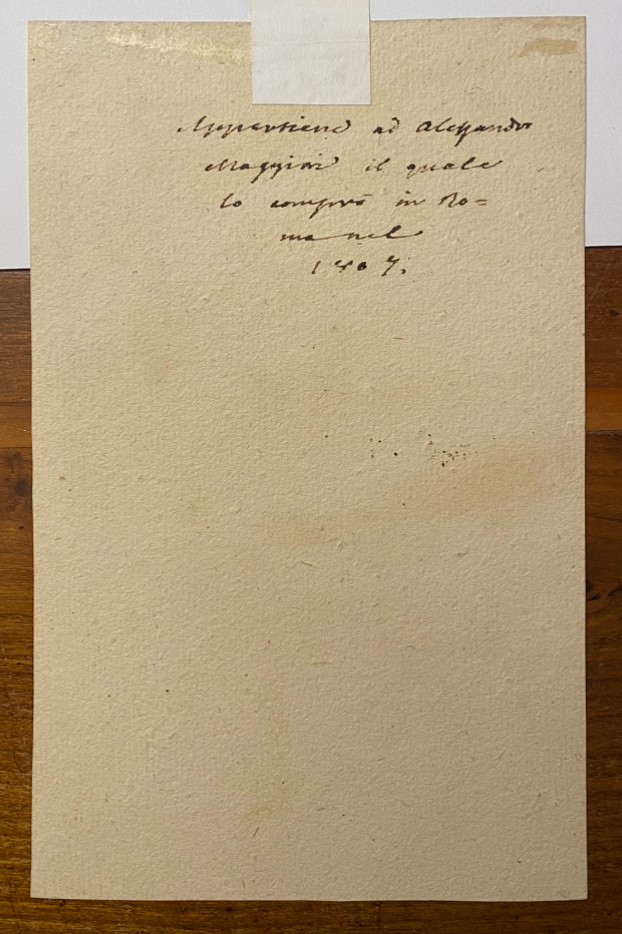 Appartiene ad Alessandro
Maggiori il quale
lo comprò in Ro=
ma nel
1807.